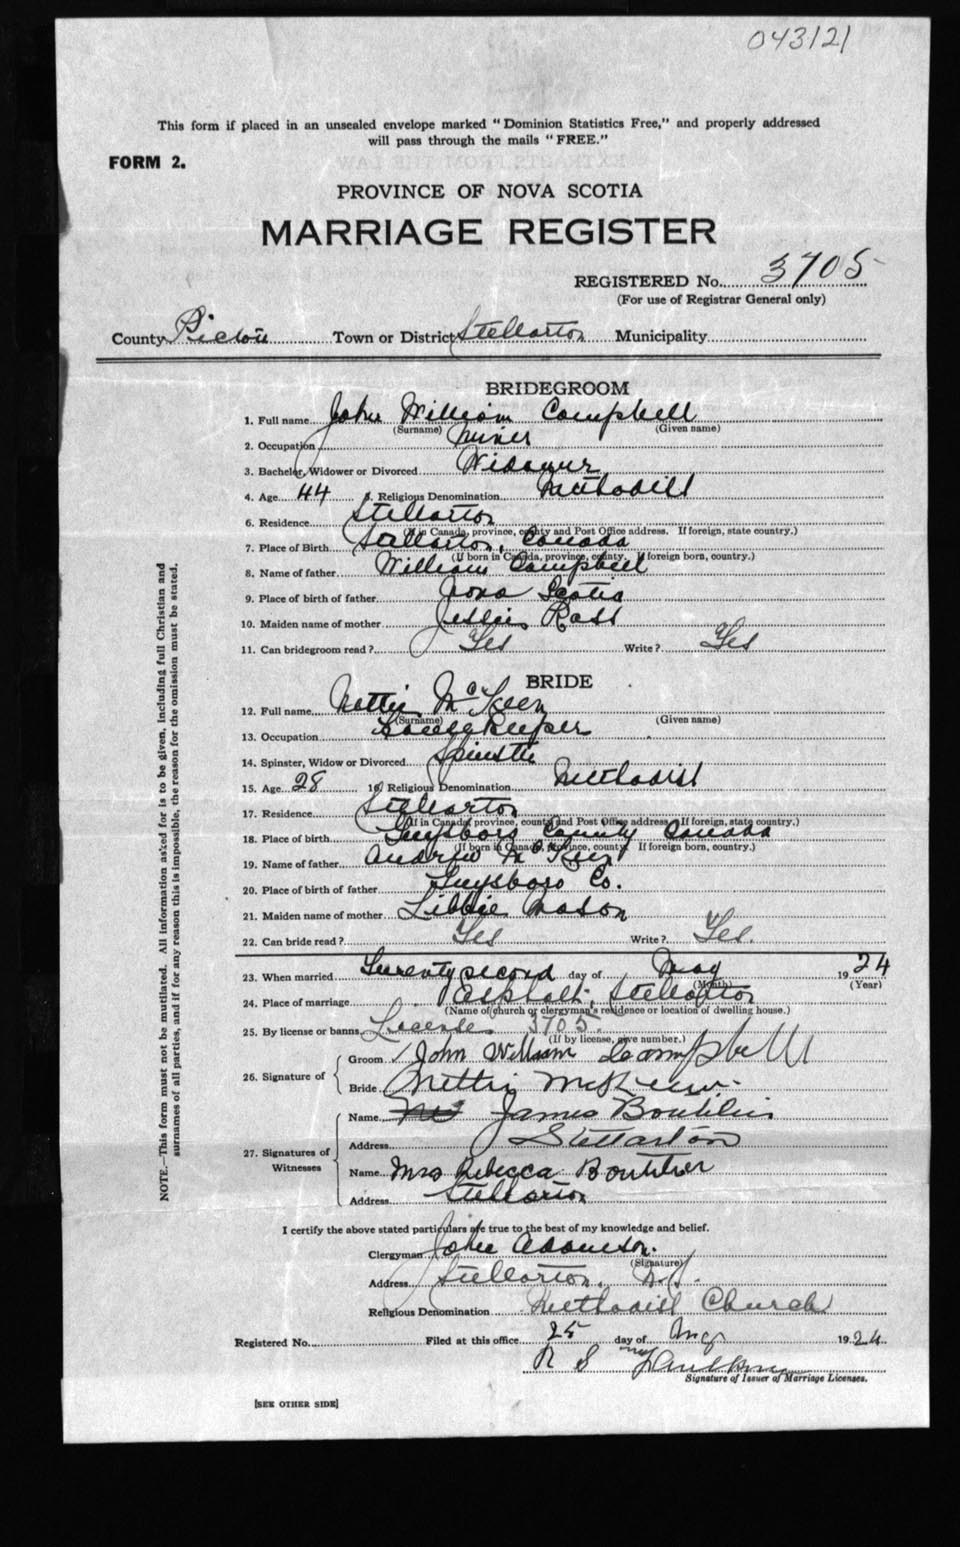 043121
This form if placed in an unsealed envelope marked "Dominion Statistics Free," and properly addressed
will pass through the mails "FREE."
FORM 2.
PROVINCE OF NOVA SCOTIA
MARRIAGE REGISTER
REGISTERED No. 3705
(For use of Registrar General only)
County Pictou Town or District Stellarton Municipality
BRIDEGROOM
1. Full name John William Campbell
(Surname) (Given name)
2. Occupation Miner
3. Bachelor, Widower or Divorced Widower
4. Age 44 5. Religious Denomination Methodist
6. Residence Stellarton
(If in Canada, province, county and Post Office address. If foreign, state country.)
7. Place of Birth Stellarton, Canada
(If born in Canada, province, county. If foreign born, country.)
8. Name of father William Campbell
9. Place of birth of father Nova Scotia
10. Maiden name of mother Jessie Ross
11. Can bridegroom read? Yes Write? Yes
BRIDE
12. Full name Nettie McKeen
(Surname) (Given name)
13. Occupation Housekeeper
14. Spinster, Widow or Divorced Spinster
15. Age 28 16. Religious Denomination Methodist
17. Residence Stellarton
(If in Canada, province, county and Post Office address. If foreign, state country.)
18. Place of birth Guysboro County Canada
(If born in Canada, province, county. If foreign born, country.)
19. Name of father Andrew McKeen
20. Place of birth of father Guysboro Co.
21. Maiden name of mother Libbie Mason
22. Can bride read? Yes Write? Yes.
23. When married Twenty second day of May 1924
(Month) (Year)
24. Place of marriage Stellarton
(Name of church or clergyman's residence or location of dwelling house.)
25. By license or banns License 3705.
(If by license, give number.)
26. Signature of
Groom John William Campbell
Bride Nettie McKeen
27. Signatures of Witnesses
Name James Boutilier
Address Stellarton
Name Mrs Rebecca Boutilier
Address Stellarton
I certify the above stated particulars are true to the best of my knowledge and belief.
Clergyman John Adamson.
(Signature)
Address Stellarton. N.S.
Religious Denomination Methodist Church
Registered No. Filed at this office 25 day of May 1924
R S
Signature of Issuer of Marriage Licenses.
[SEE OTHER SIDE]
NOTE.—This form must not be mutilated. All information asked for is to be given, including full Christian and
surnames of all parties, and if for any reason this is impossible, the reason for the omission must be stated.